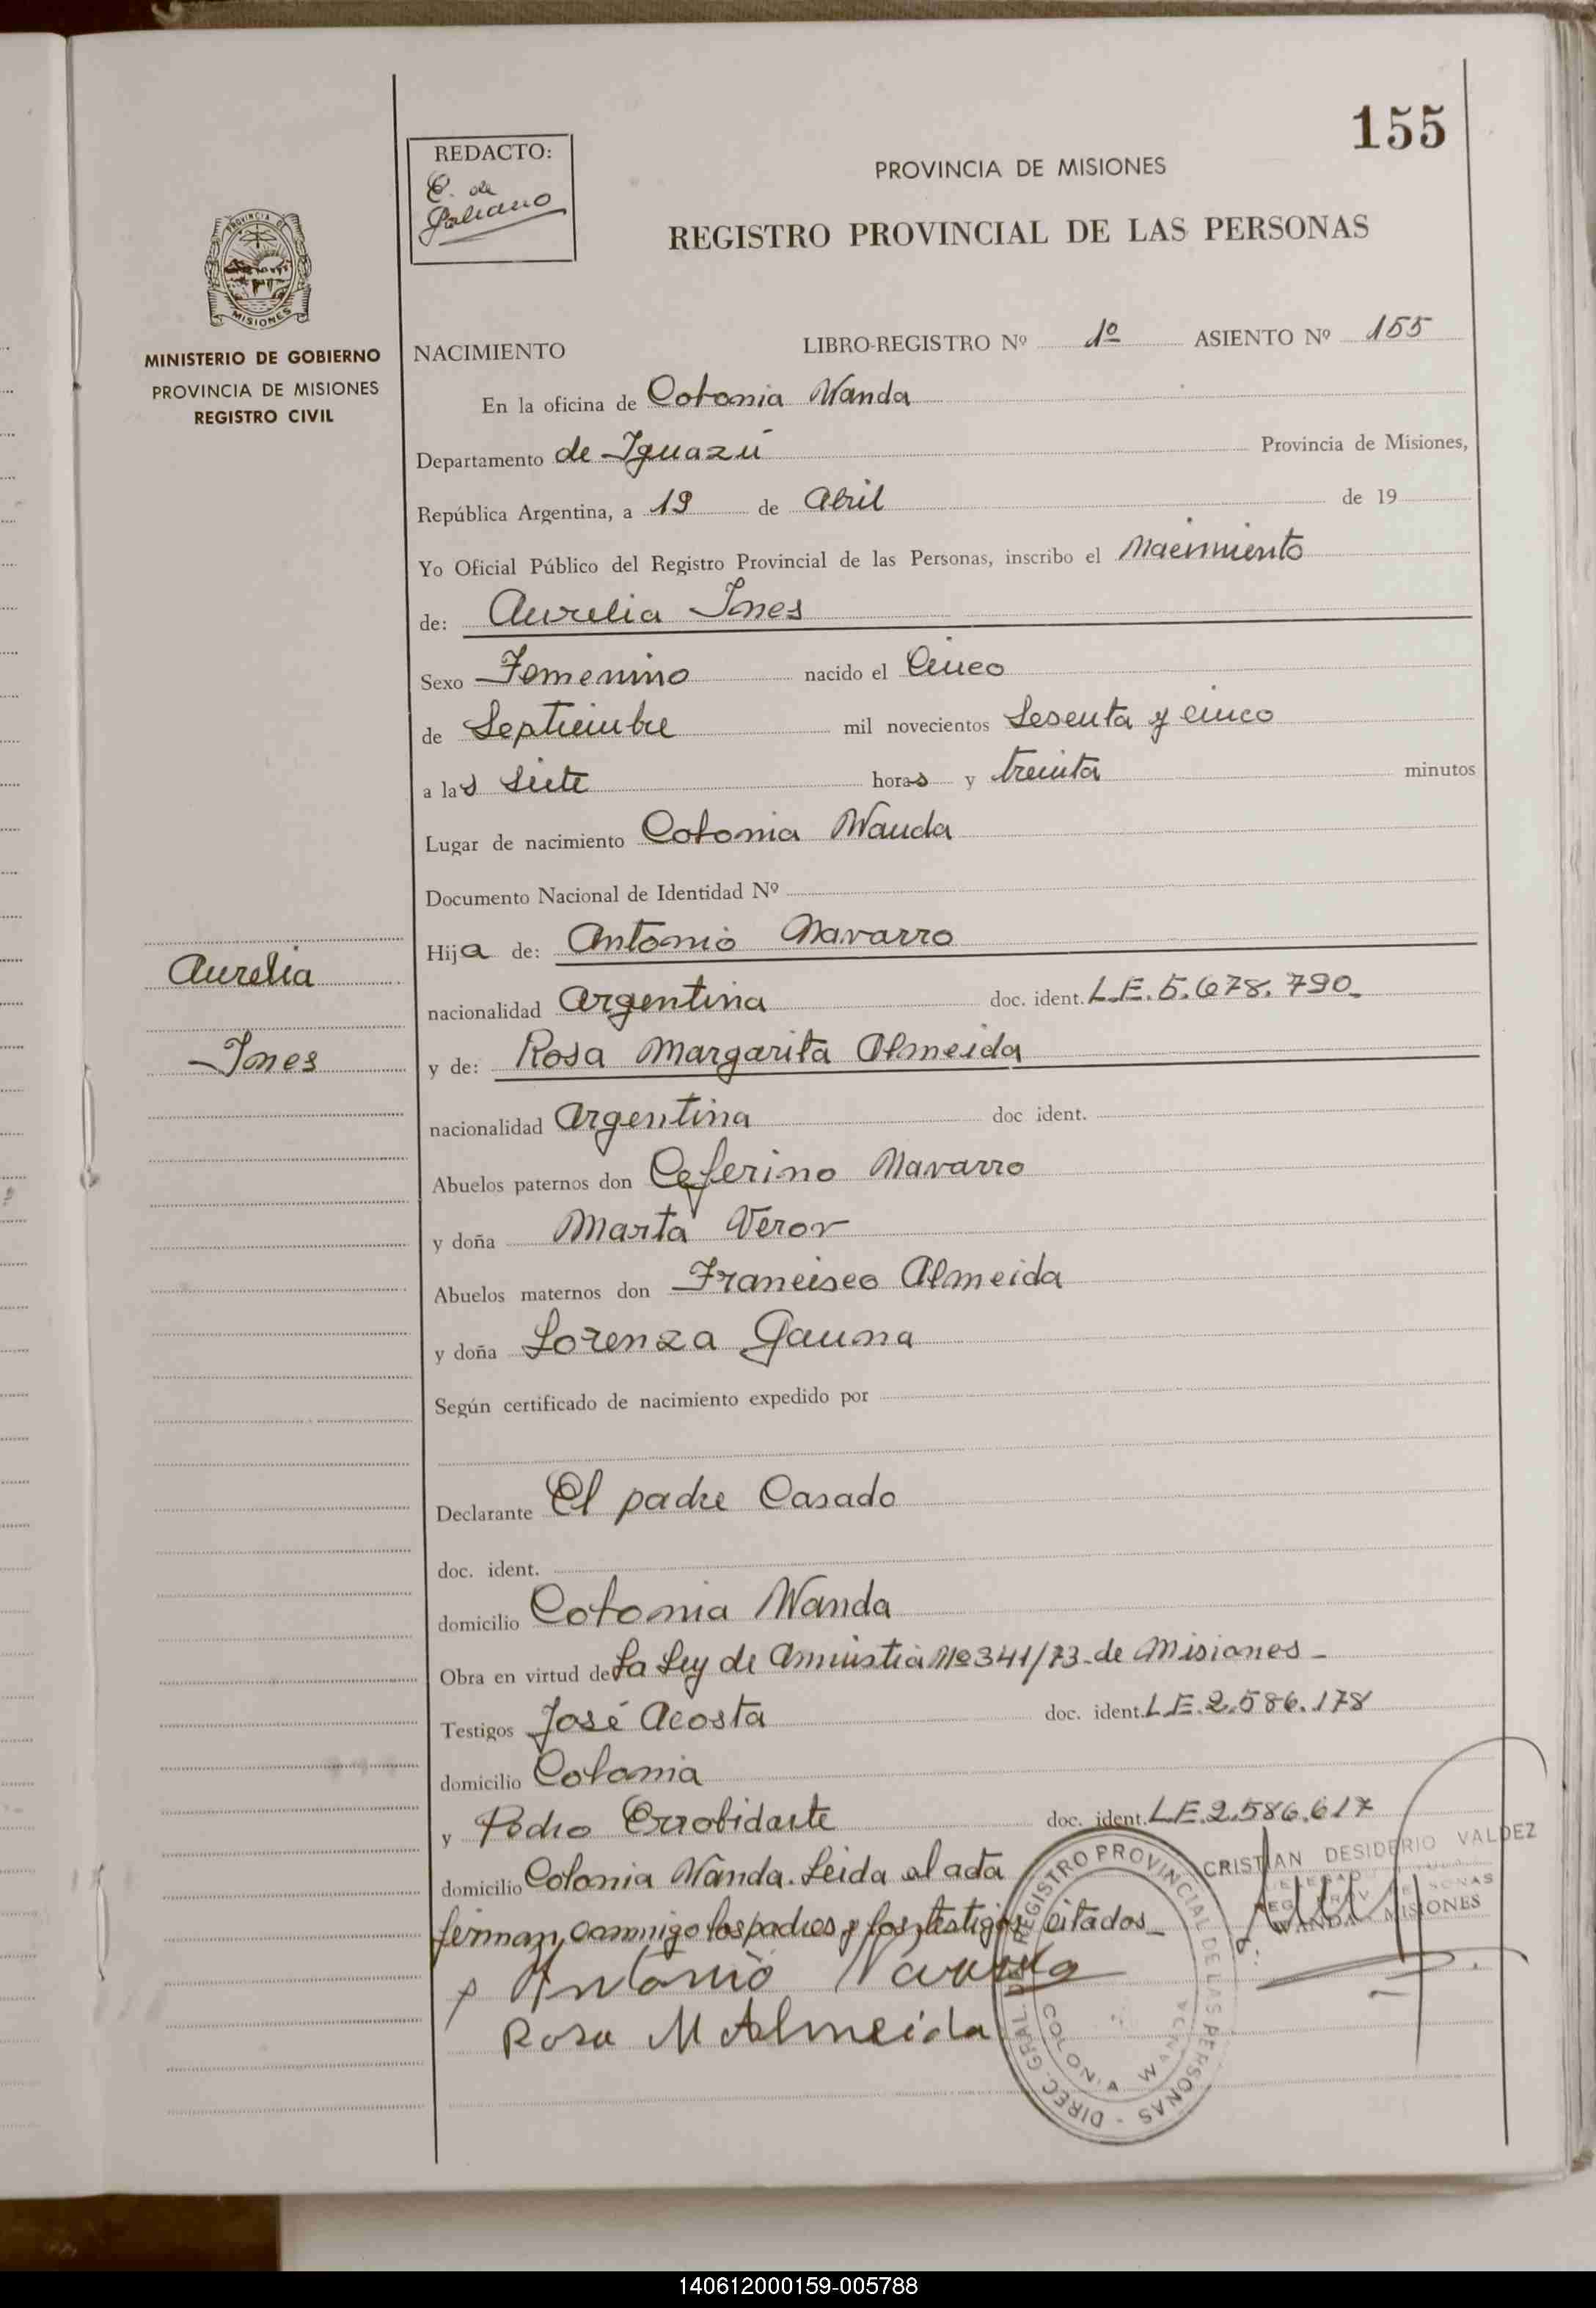 155
REDACTO:
C. de
Galeano
PROVINCIA DE MISIONES
REGISTRO PROVINCIAL DE LAS PERSONAS
PROVINCIA DE
MISIONES
MINISTERIO DE GOBIERNO
PROVINCIA DE MISIONES
REGISTRO CIVIL
NACIMIENTO LIBRO-REGISTRO Nº 1º ASIENTO Nº 155
En la oficina de Colonia Wanda
Departamento de Iguazú Provincia de Misiones,
República Argentina, a 19 de Abril de 19
Yo Oficial Público del Registro Provincial de las Personas, inscribo el Nacimiento
de: Aurelia Ines
Sexo Femenino nacido el Cinco
de Septiembre mil novecientos Sesenta y cinco
a las Siete horas y treinta minutos
Lugar de nacimiento Colonia Wanda
Documento Nacional de Identidad Nº
Hija de: Antonio Navarro
Aurelia
nacionalidad Argentina doc. ident. L.E. 5.678.790_
Ines
y de: Rosa Margarita Almeida
nacionalidad Argentina doc ident.
Abuelos paternos don Ceferino Navarro
y doña Marta Veror
Abuelos maternos don Francisco Almeida
y doña Lorenza Gauna
Según certificado de nacimiento expedido por
Declarante El padre Casado
doc. ident.
domicilio Colonia Wanda
Obra en virtud de La Ley de Amnistia Nº 341/73 de Misiones_
Testigos José Acosta doc. ident. L.E. 2.586.178
domicilio Colonia
y Pedro Errobidarte doc. ident. L.E. 2.586.617
domicilio Colonia Wanda. Leida el acta
firman, conmigo los padres y los testigos citados_
Antonio Navarro
Rosa M Almeida
CRISTIAN DESIDERIO VALDEZ
WANDA - MISIONES
DIREC. GRAL. DEL REGISTRO PROVINCIAL DE LAS PERSONAS -
COLONIA WANDA
140612000159-005788